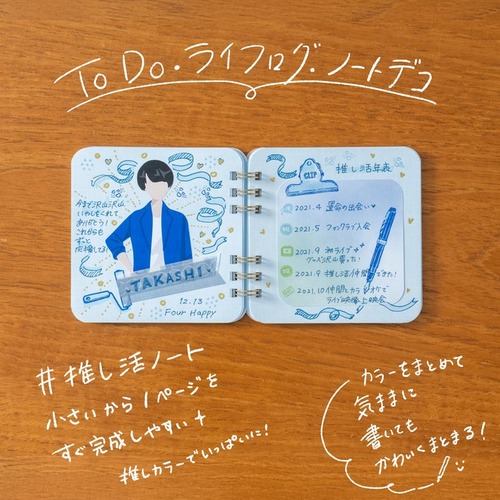 To Do・ライフログ・ノートデコ
今まで沢山沢山
いやしをくれて
ありがとう!
これからも
ずっと
応援してる!
TAKASHI
12.13
Four Happy
CLIP
推し活年表
2021.4 運命の出会い♥
2021.5 ファンクラブ入会
2021.9 初ライブ♥
グッズ沢山買った!
2021.9 推し活仲間できた!
2021.10 仲間とカラオケで
ライブ映像上映会
#推し活ノート
小さいから1ページを
すぐ完成しやすい+
推しカラーでいっぱいに!
カラーをまとめて
気ままに
書いても
かわいくまとまる!